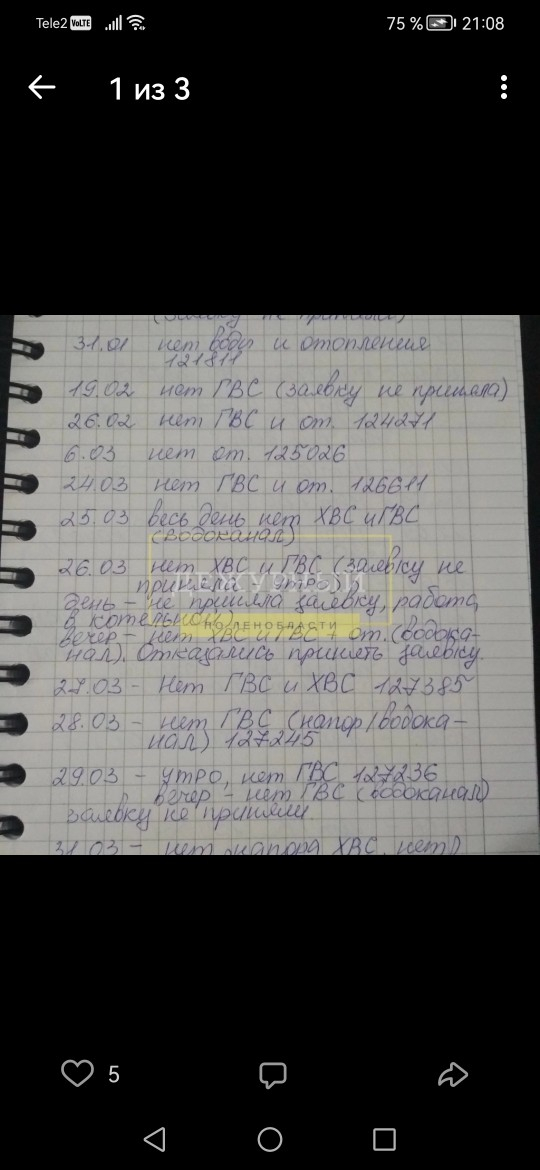 Tele2 VoLTE 75 % 21:08
1 из 3
(заявку не приняли)
31.01 нет воды и отопления
121811
19.02 нет ГВС (заявку не приняла)
26.02 нет ГВС и от. 124271
6.03 нет от. 125026
24.03 нет ГВС и от. 126611
25.03 весь день нет ХВС и ГВС
(водоканал)
26.03 нет ХВС и ГВС (заявку не
приняла утро)
ДЕЖУРНЫЙ
день - не приняла заявку, работа
в котельной)
ПО ЛЕНОБЛАСТИ
вечер - нет ХВС и ГВС + от. (водока-
нал). Отказались принять заявку.
27.03 - Нет ГВС и ХВС 127385
28.03 - нет ГВС (напор/водока-
нал) 127245
29.03 - утро, нет ГВС 127236
вечер - нет ГВС (водоканал)
заявку не приняли.
31.03 - нет напора ХВС, нет
5